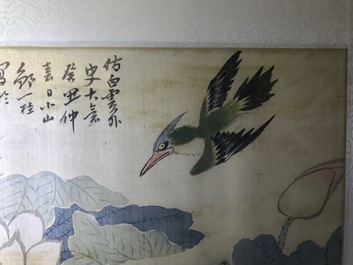 仿白雲外
史大意
癸丑仲
春日小山
鄒一桂
寫於